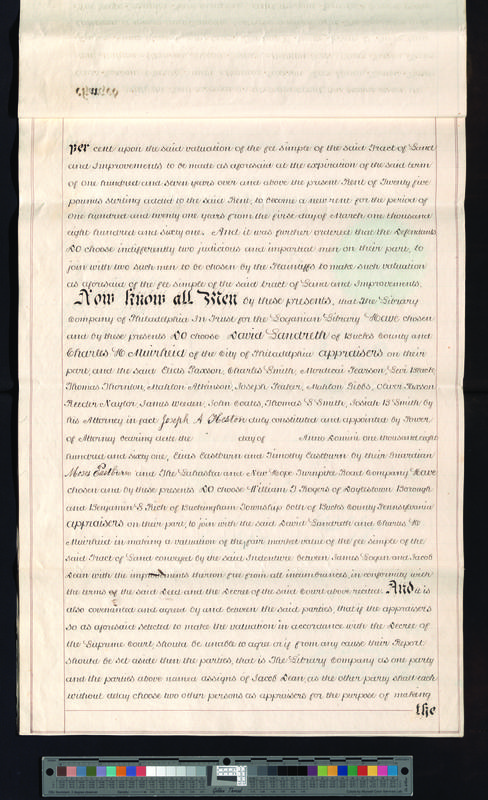 per cent upon the said valuation of the fee simple of the said Tract of Land
and Improvements to be made as aforesaid at the expiration of the said term
of one hundred and seven years over and above the present Rent of Twenty five
pounds sterling added to the said Rent, to become a new rent for the period of
One hundred and twenty one years from the first day of March one thousand
eight hundred and sixty one. And it was further ordered that the Defendants
Do choose indifferently two judicious and impartial men on their part, to
join with two such men to be chosen by the Plaintiffs to make such valuation
as aforesaid of the fee simple of the said tract of Land and Improvements.
Now know all Men by these presents, that The Library
Company of Philadelphia In Trust for the Loganian Library Have chosen
and by these presents Do choose David Landreth of Bucks County and
Charles M Muirheid of the City of Philadelphia appraisers on their
part, and the said Elias Paxson, Charles Smith, Mordecai Pearson, Levi Buck,
Thomas Thornton, Mahlon Atkinson, Joseph Fester, Mahlon Gibbs, Oliver Paxson
Reeder Naylor, James Weden, John Coates, Thomas S Smith, Josiah B Smith by
his Attorney in fact Joseph A Heston duly constituted and appointed by Power
of Attorney bearing date the day of Anno Domini one thousand eight
hundred and sixty one, Elias Eastburn and Timothy Eastburn by their Guardian
Moses Eastburn and The Lahaska and New Hope Turnpike Road Company Have
chosen and by these presents Do choose William T Rogers of Doylestown Borough
and Benjamin S Rich of Buckingham Township both of Bucks County Pennsylvania
appraisers on their part, to join with the said David Landreth and Charles M
Muirheid in making a valuation of the fair market value of the fee simple of the
said Tract of Land conveyed by the said Indenture between James Logan and Jacob
Dean with the improvements thereon free from all incumbrances, in conformity with
the terms of the said Deed and the Decree of the said Court above recited. And it is
also covenanted and agreed by and between the said parties, that if the appraisers
so as aforesaid selected to make the valuation in accordance with the Decree of
the Supreme Court, should be unable to agree or if from any cause their Report
should be set aside then the parties, that is The Library Company as one party
and the parties above named assigns of Jacob Dean, as the other party shall each
without delay choose two other persons as appraisers for the purpose of making
the